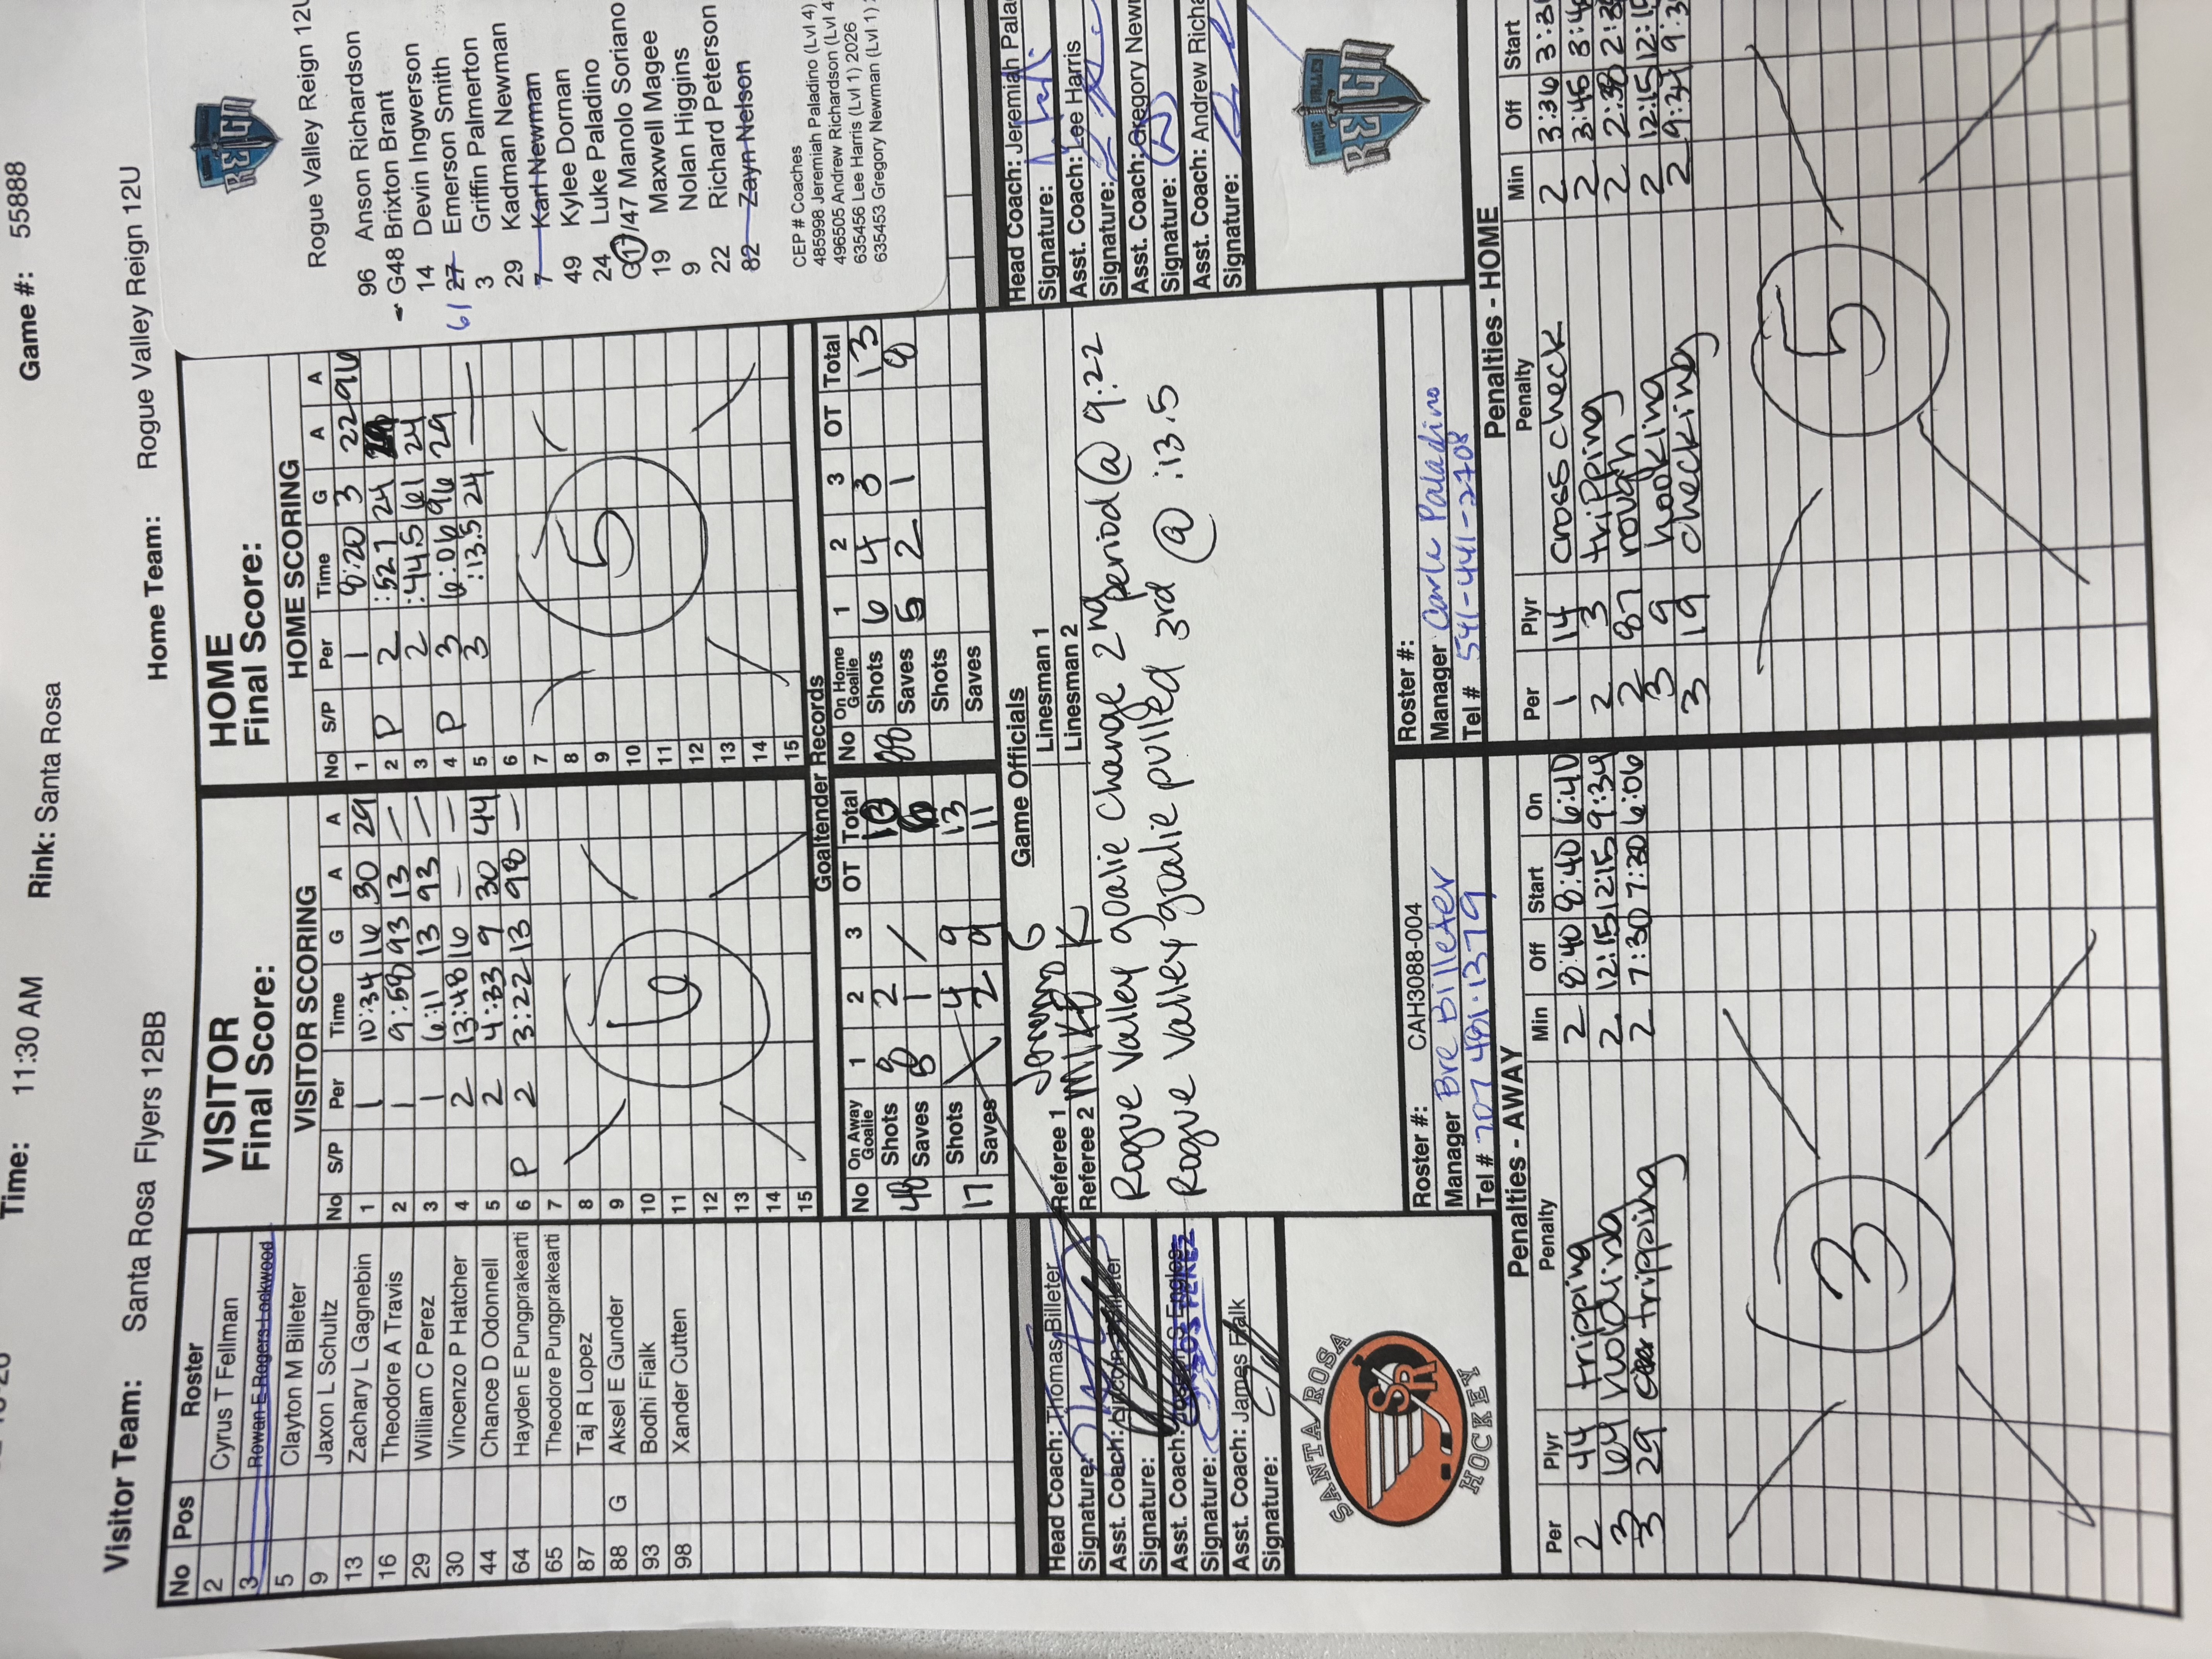 Time: 11:30 AM Rink: Santa Rosa Game #: 55888
Visitor Team: Santa Rosa Flyers 12BB Home Team: Rogue Valley Reign 12U
No Pos Roster
2 Cyrus T Fellman
3 Rowan E Rogers Lockwood
5 Clayton M Billeter
9 Jaxon L Schultz
13 Zachary L Gagnebin
16 Theodore A Travis
29 William C Perez
30 Vincenzo P Hatcher
44 Chance D Odonnell
64 Hayden E Pungprakearti
65 Theodore Pungprakearti
87 Taj R Lopez
88 G Aksel E Gunder
93 Bodhi Fialk
98 Xander Cutten
VISITOR
Final Score:
VISITOR SCORING
No S/P Per Time G A A
1 1 10:34 16 30 29
2 1 9:58 93 13 —
3 1 6:11 13 93 —
4 2 13:48 16 — —
5 2 4:33 9 30 44
6 P 2 3:22 13 98 —
7
8
9
10
11
12
13
14
15
6
HOME
Final Score:
HOME SCORING
No S/P Per Time G A A
1 1 8:20 3 22 96
2 P 2 :52.7 24
3 2 :44.5 61 24
4 P 3 6:06 96 29
5 3 :13.5 24 — —
6
7
8
9
10
11
12
13
14
15
5
Rogue Valley Reign 12U
96 Anson Richardson
G48 Brixton Brant
14 Devin Ingwerson
61 27 Emerson Smith
3 Griffin Palmerton
29 Kadman Newman
7 Karl Newman
49 Kylee Dornan
24 Luke Paladino
G17/47 Manolo Soriano
19 Maxwell Magee
9 Nolan Higgins
22 Richard Peterson
82 Zayn Nelson
CEP # Coaches
485998 Jeremiah Paladino (Lvl 4)
496505 Andrew Richardson (Lvl 4
635456 Lee Harris (Lvl 1) 2026
635453 Gregory Newman (Lvl 1)
Goaltender Records
No On Away Goalie 1 2 3 OT Total
48 Shots 8 2
Saves 8 1 /
17 Shots 4 9 13
Saves 2 9 11
No On Home Goalie 1 2 3 OT Total
88 Shots 6 4 3 13
Saves 5 2 1 8
Shots
Saves
Game Officials
Referee 1
Referee 2 MIKE K
Linesman 1
Linesman 2
Rogue Valley goalie change 2nd period @ 9:22
Rogue Valley goalie pulled 3rd @ :13.5
Head Coach: Thomas Billeter
Signature:
Asst. Coach:
Signature:
Asst. Coach:
Signature:
Asst. Coach: James Fialk
Signature:
SANTA ROSA
SR
HOCKEY
Head Coach: Jeremiah Pala
Signature:
Asst. Coach: Lee Harris
Signature:
Asst. Coach: Gregory Newm
Signature:
Asst. Coach: Andrew Richa
Signature:
ROGUE VALLEY
REIGN
Roster #: CAH3088-004
Manager Bre Billeter
Tel # 707 481.1379
Roster #:
Manager Carla Paladino
Tel # 541-441-2708
Penalties - AWAY
Per Plyr Penalty Min Off Start On
2 44 tripping 2 8:40 8:40 6:40
3 64 holding 2 12:15 12:15 9:34
3 29 tripping 2 7:30 7:30 6:06
3
Penalties - HOME
Per Plyr Penalty Min Off Start
1 14 cross check 2 3:36
2 3 tripping 2 3:45
2 87 rough 2
3 9 hooking 2 12:15
3 19 checking 2 9:34
5